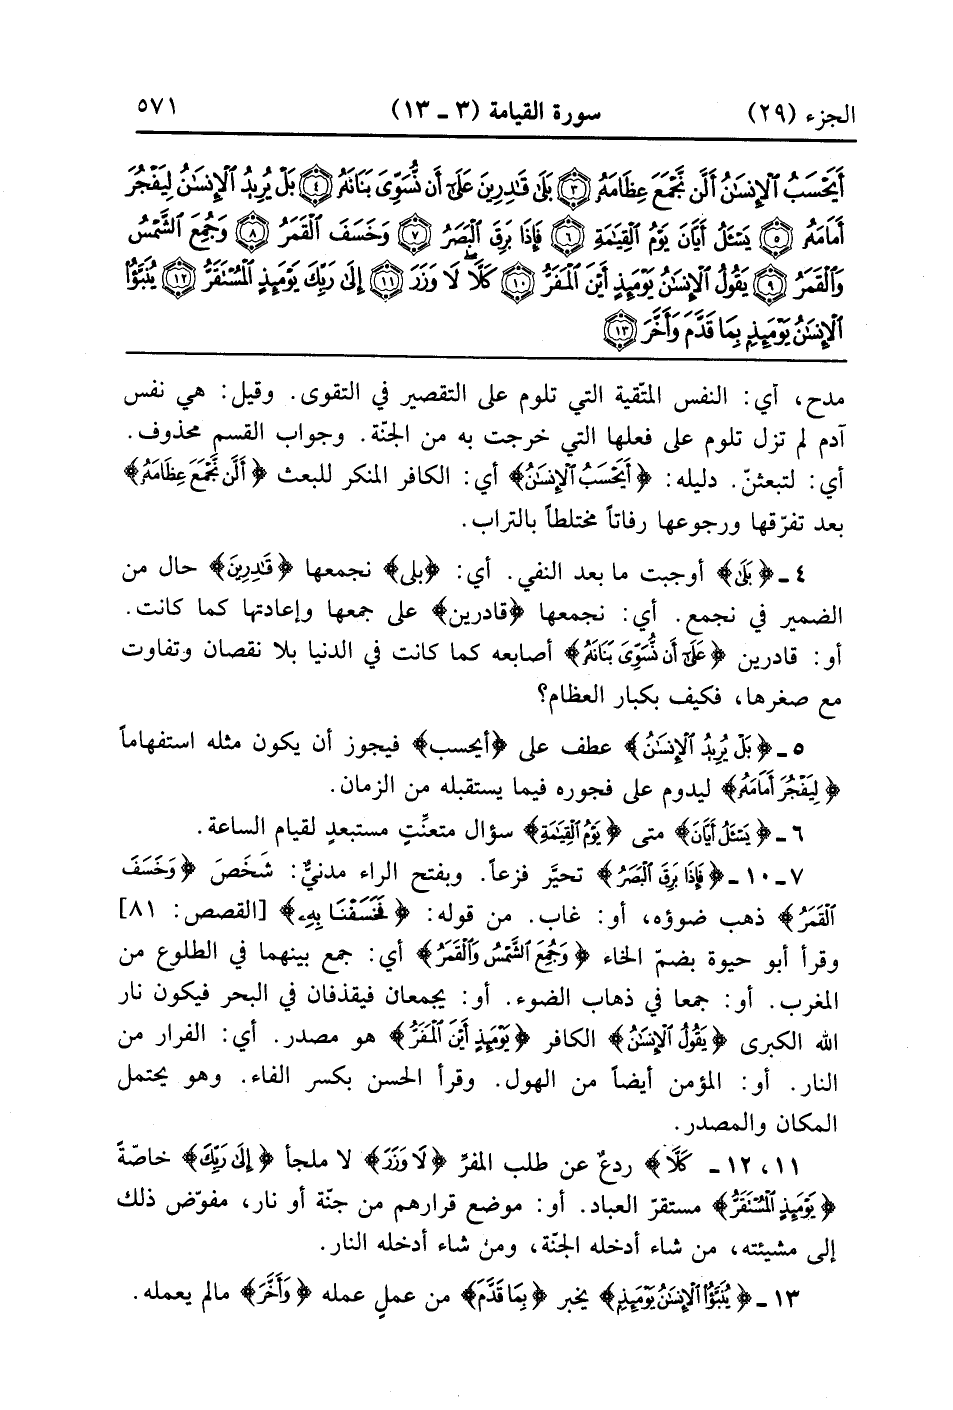 الجزء (٢٩) سورة القيامة (٣ ـ ١٣) ٥٧١
أَيَحْسَبُ ٱلْإِنسَٰنُ أَلَّن نَّجْمَعَ عِظَامَهُۥ ﴿٣﴾ بَلَىٰ قَٰدِرِينَ عَلَىٰٓ أَن نُّسَوِّىَ بَنَانَهُۥ ﴿٤﴾ بَلْ يُرِيدُ ٱلْإِنسَٰنُ لِيَفْجُرَ
أَمَامَهُۥ ﴿٥﴾ يَسْـَٔلُ أَيَّانَ يَوْمُ ٱلْقِيَٰمَةِ ﴿٦﴾ فَإِذَا بَرِقَ ٱلْبَصَرُ ﴿٧﴾ وَخَسَفَ ٱلْقَمَرُ ﴿٨﴾ وَجُمِعَ ٱلشَّمْسُ
وَٱلْقَمَرُ ﴿٩﴾ يَقُولُ ٱلْإِنسَٰنُ يَوْمَئِذٍ أَيْنَ ٱلْمَفَرُّ ﴿١٠﴾ كَلَّا لَا وَزَرَ ﴿١١﴾ إِلَىٰ رَبِّكَ يَوْمَئِذٍ ٱلْمُسْتَقَرُّ ﴿١٢﴾ يُنَبَّؤُا۟
ٱلْإِنسَٰنُ يَوْمَئِذٍۭ بِمَا قَدَّمَ وَأَخَّرَ ﴿١٣﴾
مدح، أي: النفس المتّقية التي تلوم على التقصير في التقوى. وقيل: هي نفس
آدم لم تزل تلوم على فعلها التي خرجت به من الجنّة. وجواب القسم محذوف.
أي: لتبعثنّ. دليله: ﴿أَيَحْسَبُ ٱلْإِنسَٰنُ﴾ أي: الكافر المنكر للبعث ﴿أَلَّن نَّجْمَعَ عِظَامَهُۥ﴾
بعد تفرّقها ورجوعها رفاتاً مختلطاً بالتراب.
٤ ـ ﴿بَلَىٰ﴾ أوجبت ما بعد النفي. أي: ﴿بلى﴾ نجمعها ﴿قَٰدِرِينَ﴾ حال من
الضمير في نجمع. أي: نجمعها ﴿قادرين﴾ على جمعها وإعادتها كما كانت.
أو: قادرين ﴿عَلَىٰٓ أَن نُّسَوِّىَ بَنَانَهُۥ﴾ أصابعه كما كانت في الدنيا بلا نقصان وتفاوت
مع صغرها، فكيف بكبار العظام؟
٥ ـ ﴿بَلْ يُرِيدُ ٱلْإِنسَٰنُ﴾ عطف على ﴿أيحسب﴾ فيجوز أن يكون مثله استفهاماً
﴿لِيَفْجُرَ أَمَامَهُۥ﴾ ليدوم على فجوره فيما يستقبله من الزمان.
٦ ـ ﴿يَسْـَٔلُ أَيَّانَ﴾ متى ﴿يَوْمُ ٱلْقِيَٰمَةِ﴾ سؤال متعنِّتٍ مستبعدٍ لقيام الساعة.
٧ ـ ١٠ ـ ﴿فَإِذَا بَرِقَ ٱلْبَصَرُ﴾ تحيَّر فزعاً. وبفتح الراء مدنيٌّ: شَخَصَ ﴿وَخَسَفَ
ٱلْقَمَرُ﴾ ذهب ضوؤه، أو: غاب. من قوله: ﴿فَخَسَفْنَا بِهِۦ﴾ [القصص: ٨١]
وقرأ أبو حيوة بضمّ الخاء ﴿وَجُمِعَ ٱلشَّمْسُ وَٱلْقَمَرُ﴾ أي: جمع بينهما في الطلوع من
المغرب. أو: جمعا في ذهاب الضوء. أو: يجمعان فيقذفان في البحر فيكون نار
الله الكبرى ﴿يَقُولُ ٱلْإِنسَٰنُ﴾ الكافر ﴿يَوْمَئِذٍ أَيْنَ ٱلْمَفَرُّ﴾ هو مصدر. أي: الفرار من
النار. أو: المؤمن أيضاً من الهول. وقرأ الحسن بكسر الفاء. وهو يحتمل
المكان والمصدر.
١١، ١٢ ـ كَلَّا﴾ ردعٌ عن طلب المفرِّ ﴿لَا وَزَرَ﴾ لا ملجأ ﴿إِلَىٰ رَبِّكَ﴾ خاصّةً
﴿يَوْمَئِذٍ ٱلْمُسْتَقَرُّ﴾ مستقرّ العباد. أو: موضع قرارهم من جنّة أو نار، مفوّض ذلك
إلى مشيئته، من شاء أدخله الجنّة، ومن شاء أدخله النار.
١٣ ـ ﴿يُنَبَّؤُا۟ ٱلْإِنسَٰنُ يَوْمَئِذٍۭ﴾ يخبر ﴿بِمَا قَدَّمَ﴾ من عملٍ عمله ﴿وَأَخَّرَ﴾ مالم يعمله.